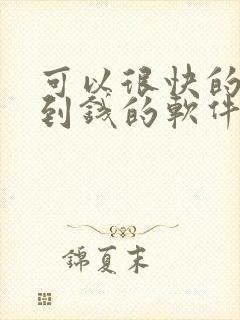 可以很快的
到錢的軟件
錦夏末